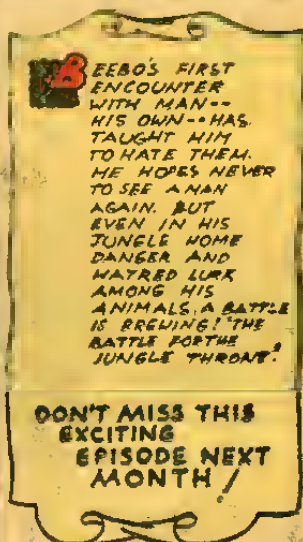 BEEBO'S FIRST
ENCOUNTER
WITH MAN--
HIS OWN--HAS
TAUGHT HIM
TO HATE THEM.
HE HOPES NEVER
TO SEE A MAN
AGAIN. BUT
EVEN IN HIS
JUNGLE HOME
DANGER AND
HATRED LURK
AMONG HIS
ANIMALS. A BATTLE
IS BREWING! "THE
BATTLE FOR THE
JUNGLE THRONE".
DON'T MISS THIS
EXCITING
EPISODE NEXT
MONTH!